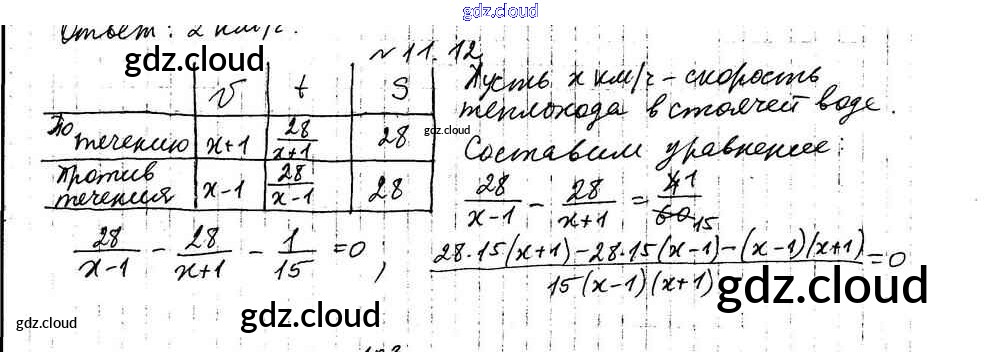 gdz.cloud
Ответ: 2 км/ч.
gdz.cloud
№11.12
v t S
По течению x+1 28/(x+1) 28
Против течения x-1 28/(x-1) 28
gdz.cloud
Пусть x км/ч – скорость
теплохода в стоячей воде.
Составим уравнение:
28/(x-1) - 28/(x+1) = 4 1/60 15
28/(x-1) - 28/(x+1) - 1/15 = 0;
(28·15(x+1) - 28·15(x-1) - (x-1)(x+1))/(15(x-1)(x+1)) = 0
gdz.cloud
gdz.cloud
gdz.cloud